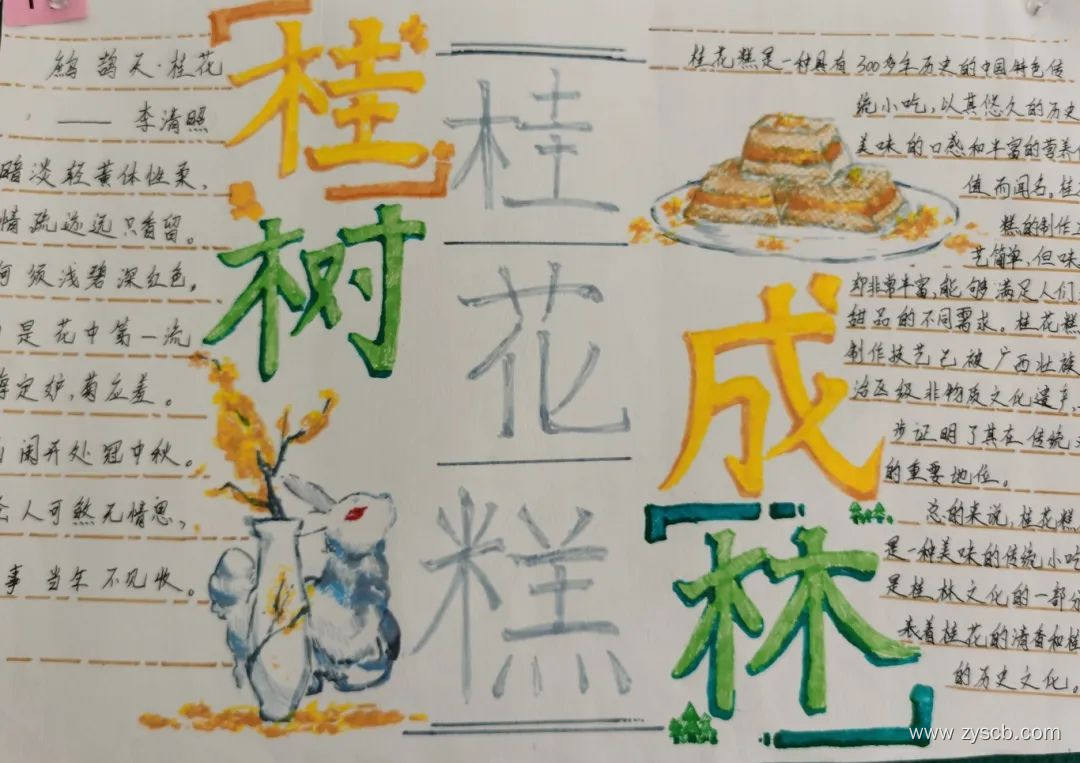 鹧鸪天·桂花
—— 李清照
暗淡轻黄体性柔,
情疏迹远只香留。
何须浅碧深红色,
是花中第一流
定妒,菊应羞。
阑开处冠中秋。
人可煞无情思,
事当年不见收。
桂
树
桂
花
糕
成
林
桂花糕是一种具有300多年历史的中国特色传
统小吃,以其悠久的历史
美味的口感和丰富的营养
值而闻名,桂
糕的制作工
艺简单,但味
却非常丰富,能够满足人们
甜品的不同需求。桂花糕
制作技艺已被广西壮族
治区级非物质文化遗产,
步证明了其在传统
的重要地位。
总的来说,桂花糕
是一种美味的传统小吃
是桂林文化的一部分
表着桂花的清香和桂
的历史文化。
www.zyscb.com